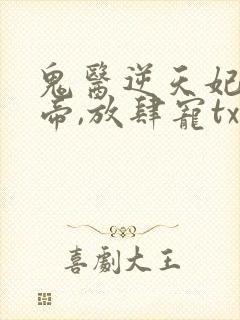 鬼醫逆天妃
帝,放肆寵tx
喜劇大王